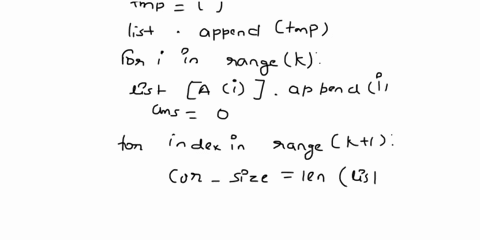 tmp = [ ]
list . append (tmp)
for i in range (k):
list [A (i) ] . append (i,
ans = 0
for index in range (k+1):
Cur _ size = len (lis